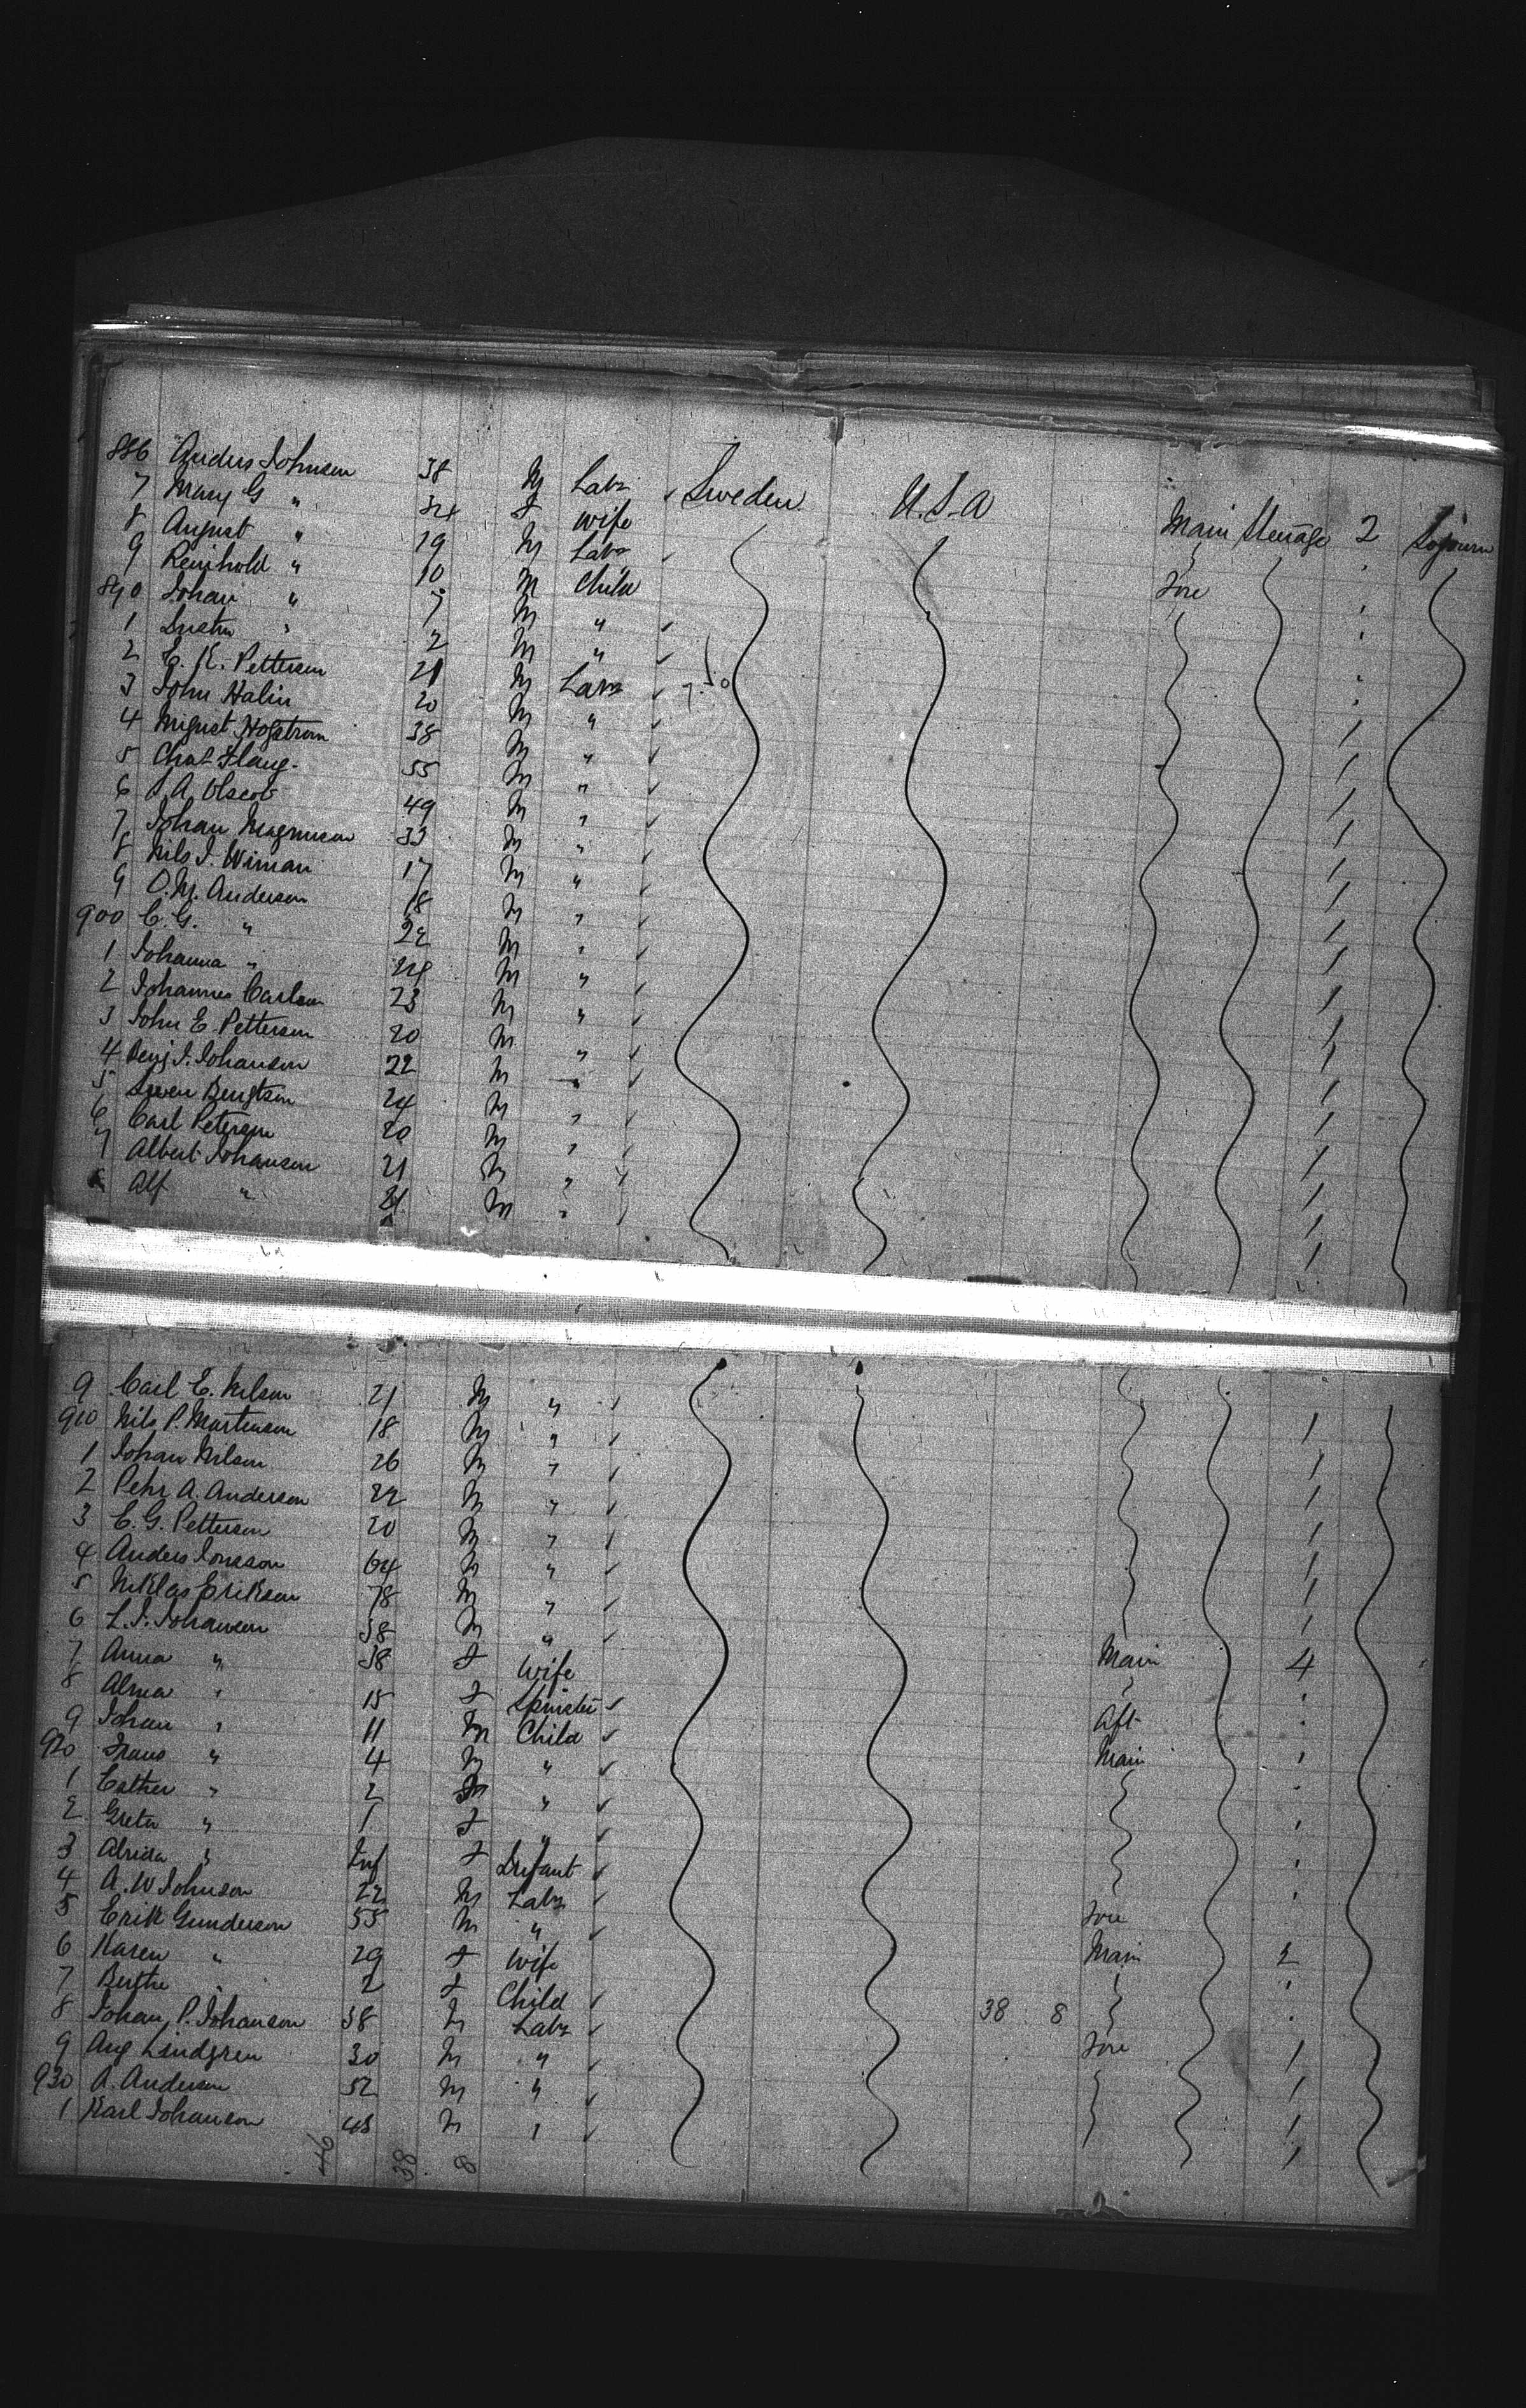 886 Anders Johnson 38 M Labr ✓ Sweden U.S.A Main Steerage 2 Sojourn
7 Mary G " 34 F Wife
8 August " 19 M Labr ✓ Fore
9 Reinhold " 10 M Child
890 Johan " 7 M " ✓
1 " 2 M " ✓
2 C. E. Petterson 21 M Labr ✓
3 John Halin 20 M " ✓
4 August Hogstrom 38 M " ✓
5 55 M " ✓
6 49 M " ✓
7 Johan Magnuson 33 M " ✓
8 Nils J. Wiman 17 M " ✓
9 O. M. Anderson 18 M " ✓
900 C. G. " 22 M " ✓
1 Johanna " 24 M " ✓
2 Johannes Carlson 23 M " ✓
3 John E. Petterson 20 M " ✓
4 Benj. F. Johanson 22 M " ✓
5 Swen Bengtson 24 M " ✓
6 Carl Peterson 20 M " ✓
7 Albert Johanson 21 M " ✓
8 Alf " 21 M "
9 Carl E. Nelson 21 M " ✓
910 Nils P. Martenson 18 M " ✓
1 Johan Nilson 26 M " ✓
2 Pehr A. Anderson 22 M " ✓
3 C. G. Petterson 20 M " ✓
4 Anders Jonsson 64 M " ✓
5 Niklas Erikson 78 M " ✓
6 L. J. Johanson 38 M " ✓
7 Anna " 38 F Wife Main 4
8 Alma " 15 F Spinster ✓
9 Johan " 11 M Child ✓ Aft
920 Frans " 4 M " ✓ Main
1 Esther " 2 " ✓
2 Greta " 1 F " ✓
3 " Inf F Infant ✓
4 A. W Johnson 22 M Labr ✓
5 Erik Gunderson 55 M " ✓ Fore
6 Karen " 29 F Wife Main 2
7 Berthe " 2 F Child ✓
8 Johan P. Johanson 38 M Labr ✓ 38 8
9 Aug Lindgren 30 M " ✓ Fore
930 A. Anderson 52 M " ✓
1 Karl Johanson 43 M " ✓
46 38 8